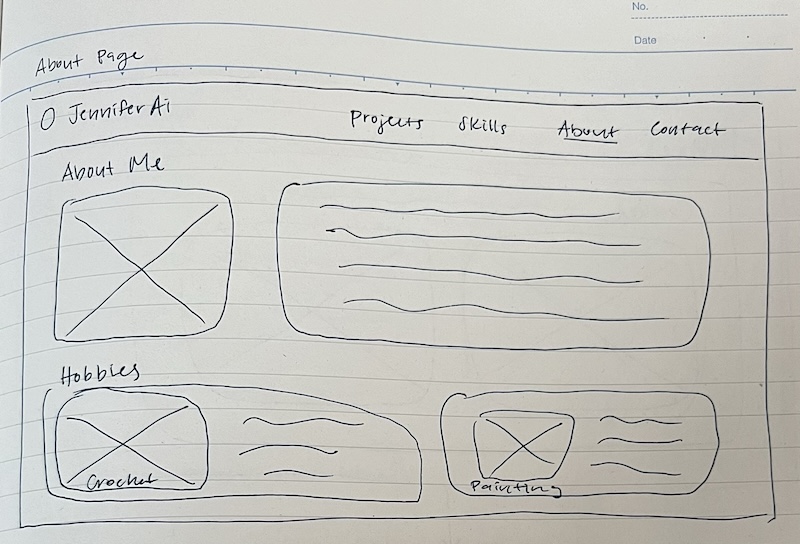 No.
Date
About Page
O Jennifer Ai Projects Skills About Contact
About Me
Hobbies
Crochet
Painting